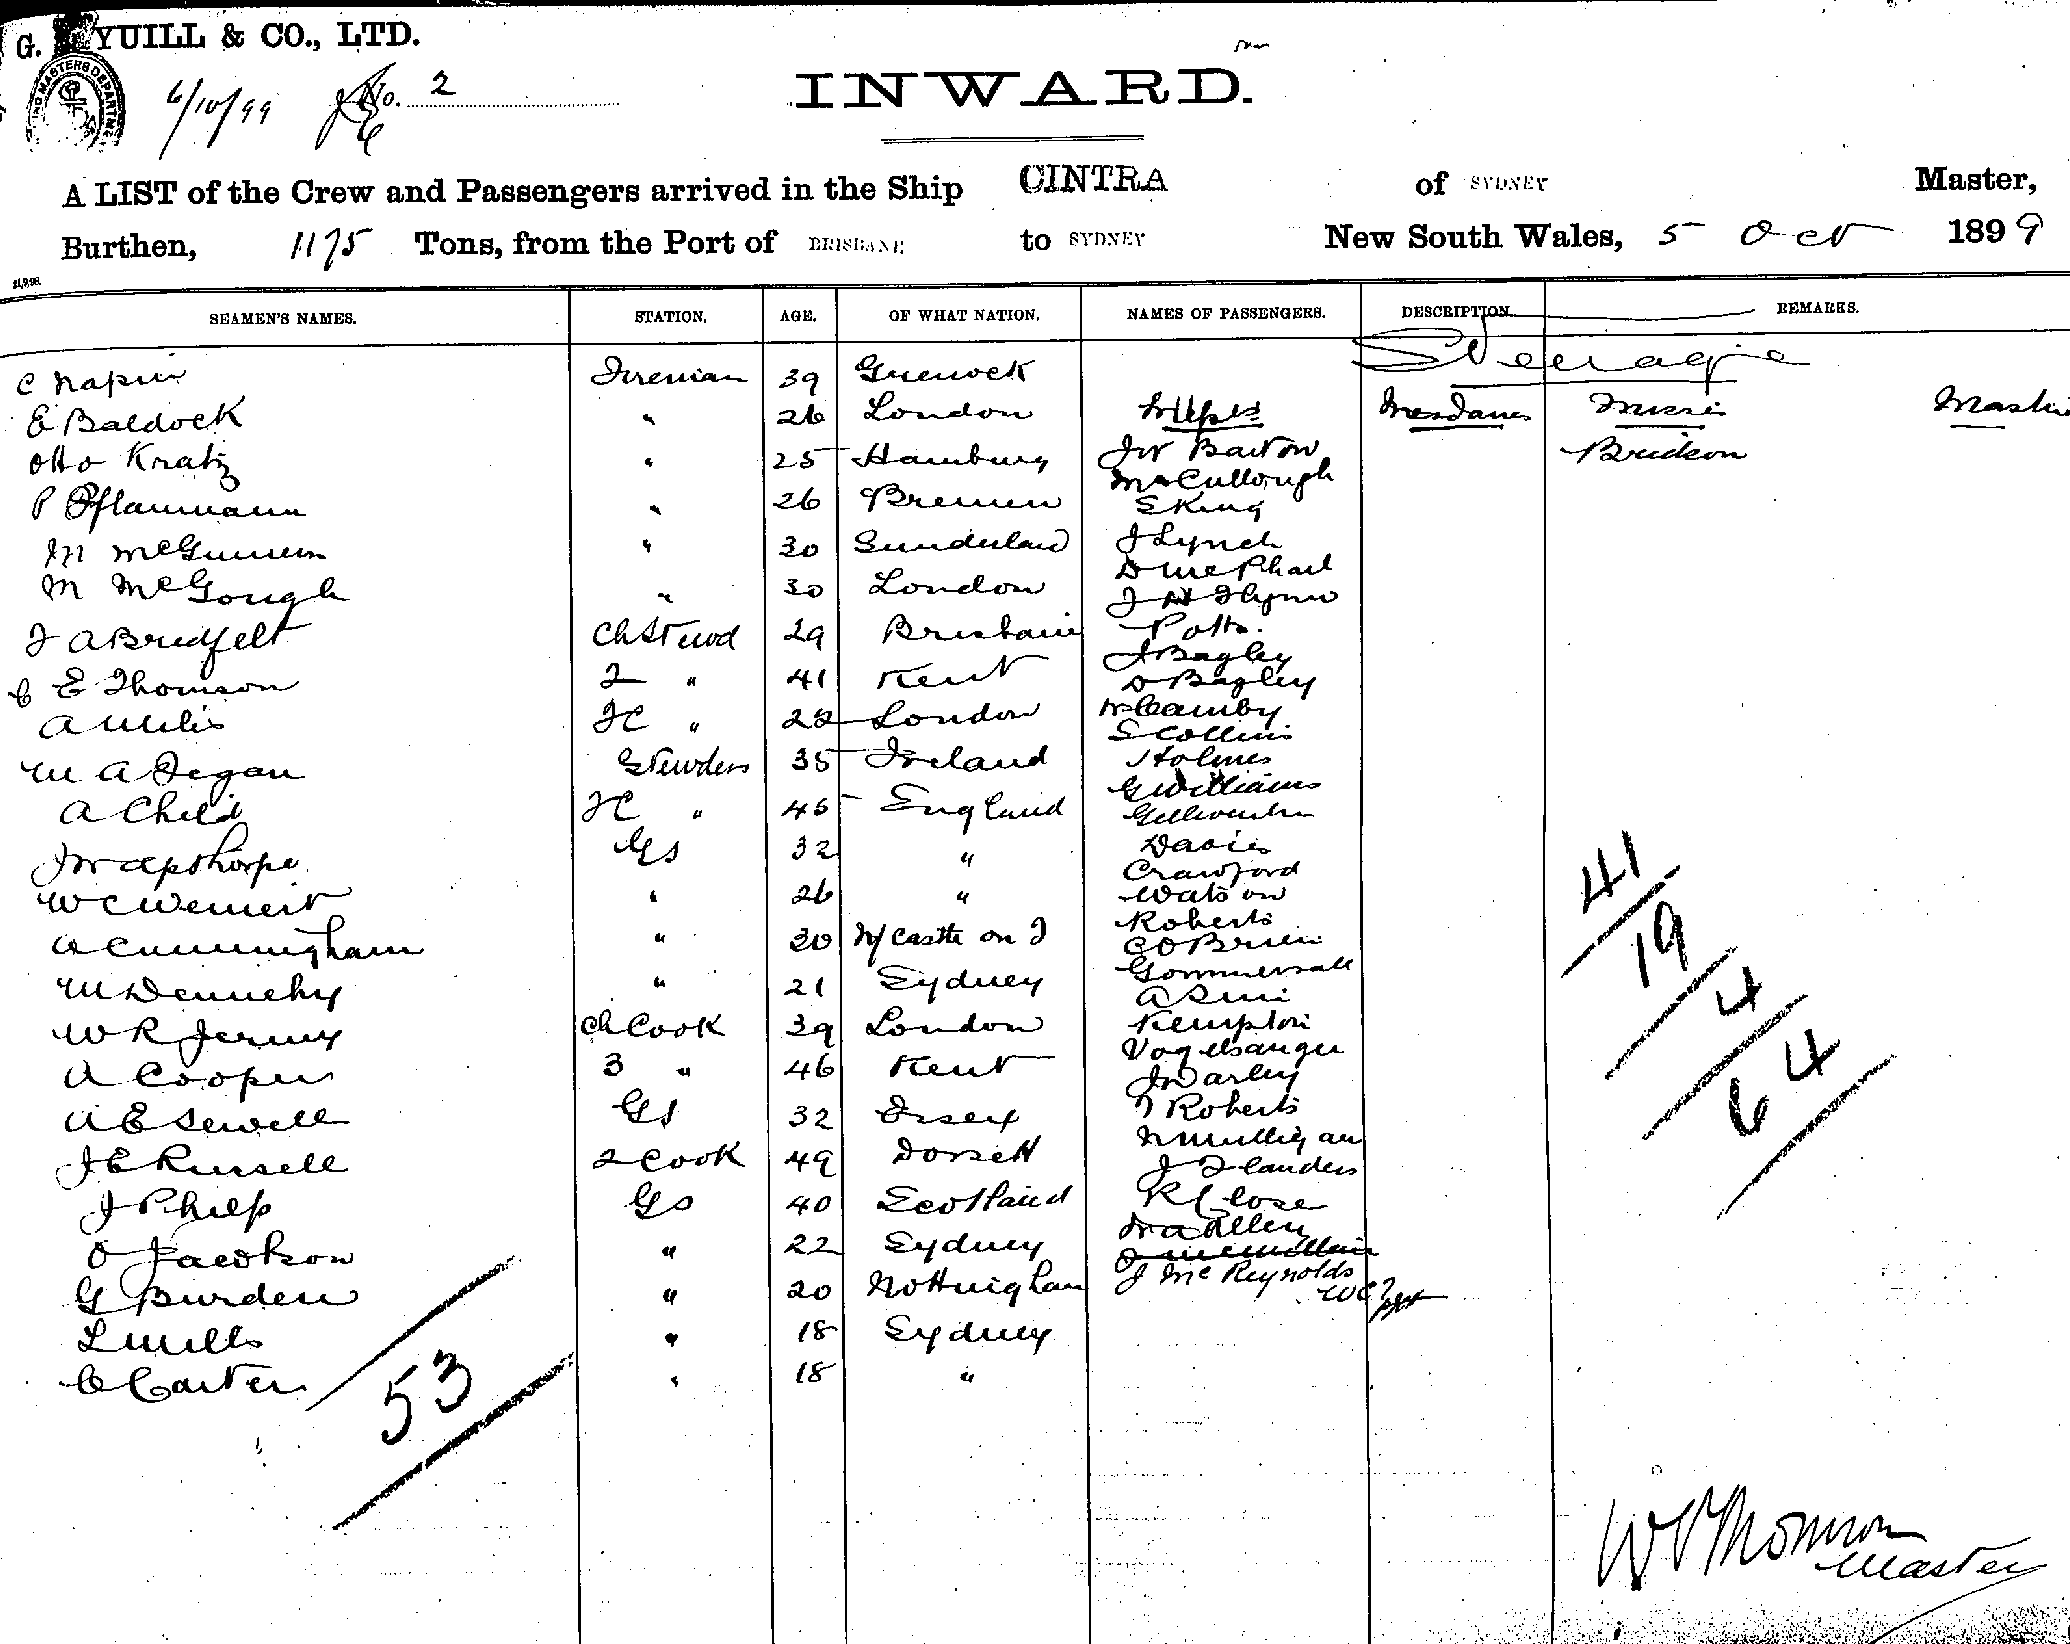 G. YUILL & CO., LTD.
6/10/99 No. 2
INWARD.
A LIST of the Crew and Passengers arrived in the Ship CINTRA of SYDNEY Master,
Burthen, 1175 Tons, from the Port of BRISBANE to SYDNEY New South Wales, 5 Oct 1899
SEAMEN'S NAMES. STATION. AGE. OF WHAT NATION. NAMES OF PASSENGERS. DESCRIPTION. REMARKS.
Steerage
C Napier Fireman 39 Greenock
E Baldock " 26 London Messrs Mesdames Misses
Otto Kratz " 25 Hamburg JW Barton Bridson
P Pflaumann " 26 Bremen McCullough
S King
M " 30 Sunderland J Lynch
M McGough " 30 London D McPhail
J Flynn
J A Bredfelt Ch Stewd 29 Brisbane Potts.
J Bagley
C E Thomson 2 " 41 Kent D Bagley
A Willis FC " 22 London W Camby
S Collins
M A Fegan Stewdess 35 Ireland Holmes
G Williams
A Child FC " 45 England
JW Apthorpe GS 32 " Davis
Crawford
W C " 26 " Watson
A Cunningham " 20 N/Castle on T Roberts
C O Brien
M Dennehy " 21 Sydney Gommersall
A
W R Jermy Ch Cook 39 London Kempton
A Cooper 3 " 46 Kent Vogelsanger
J Darley
A E Sewell GS 32 Essex T Roberts
J E Russell 2 Cook 49 Dorsett W Mulligan
J Flanders
J Philp GS 40 Scotland R Close
W A Allen
O Jacobson " 22 Sydney J McMillan
G Burden " 20 Nottingham J McReynolds
L Mills " 18 Sydney
C Carter " 18 "
53
41
19
4
64
W Thomson
Master